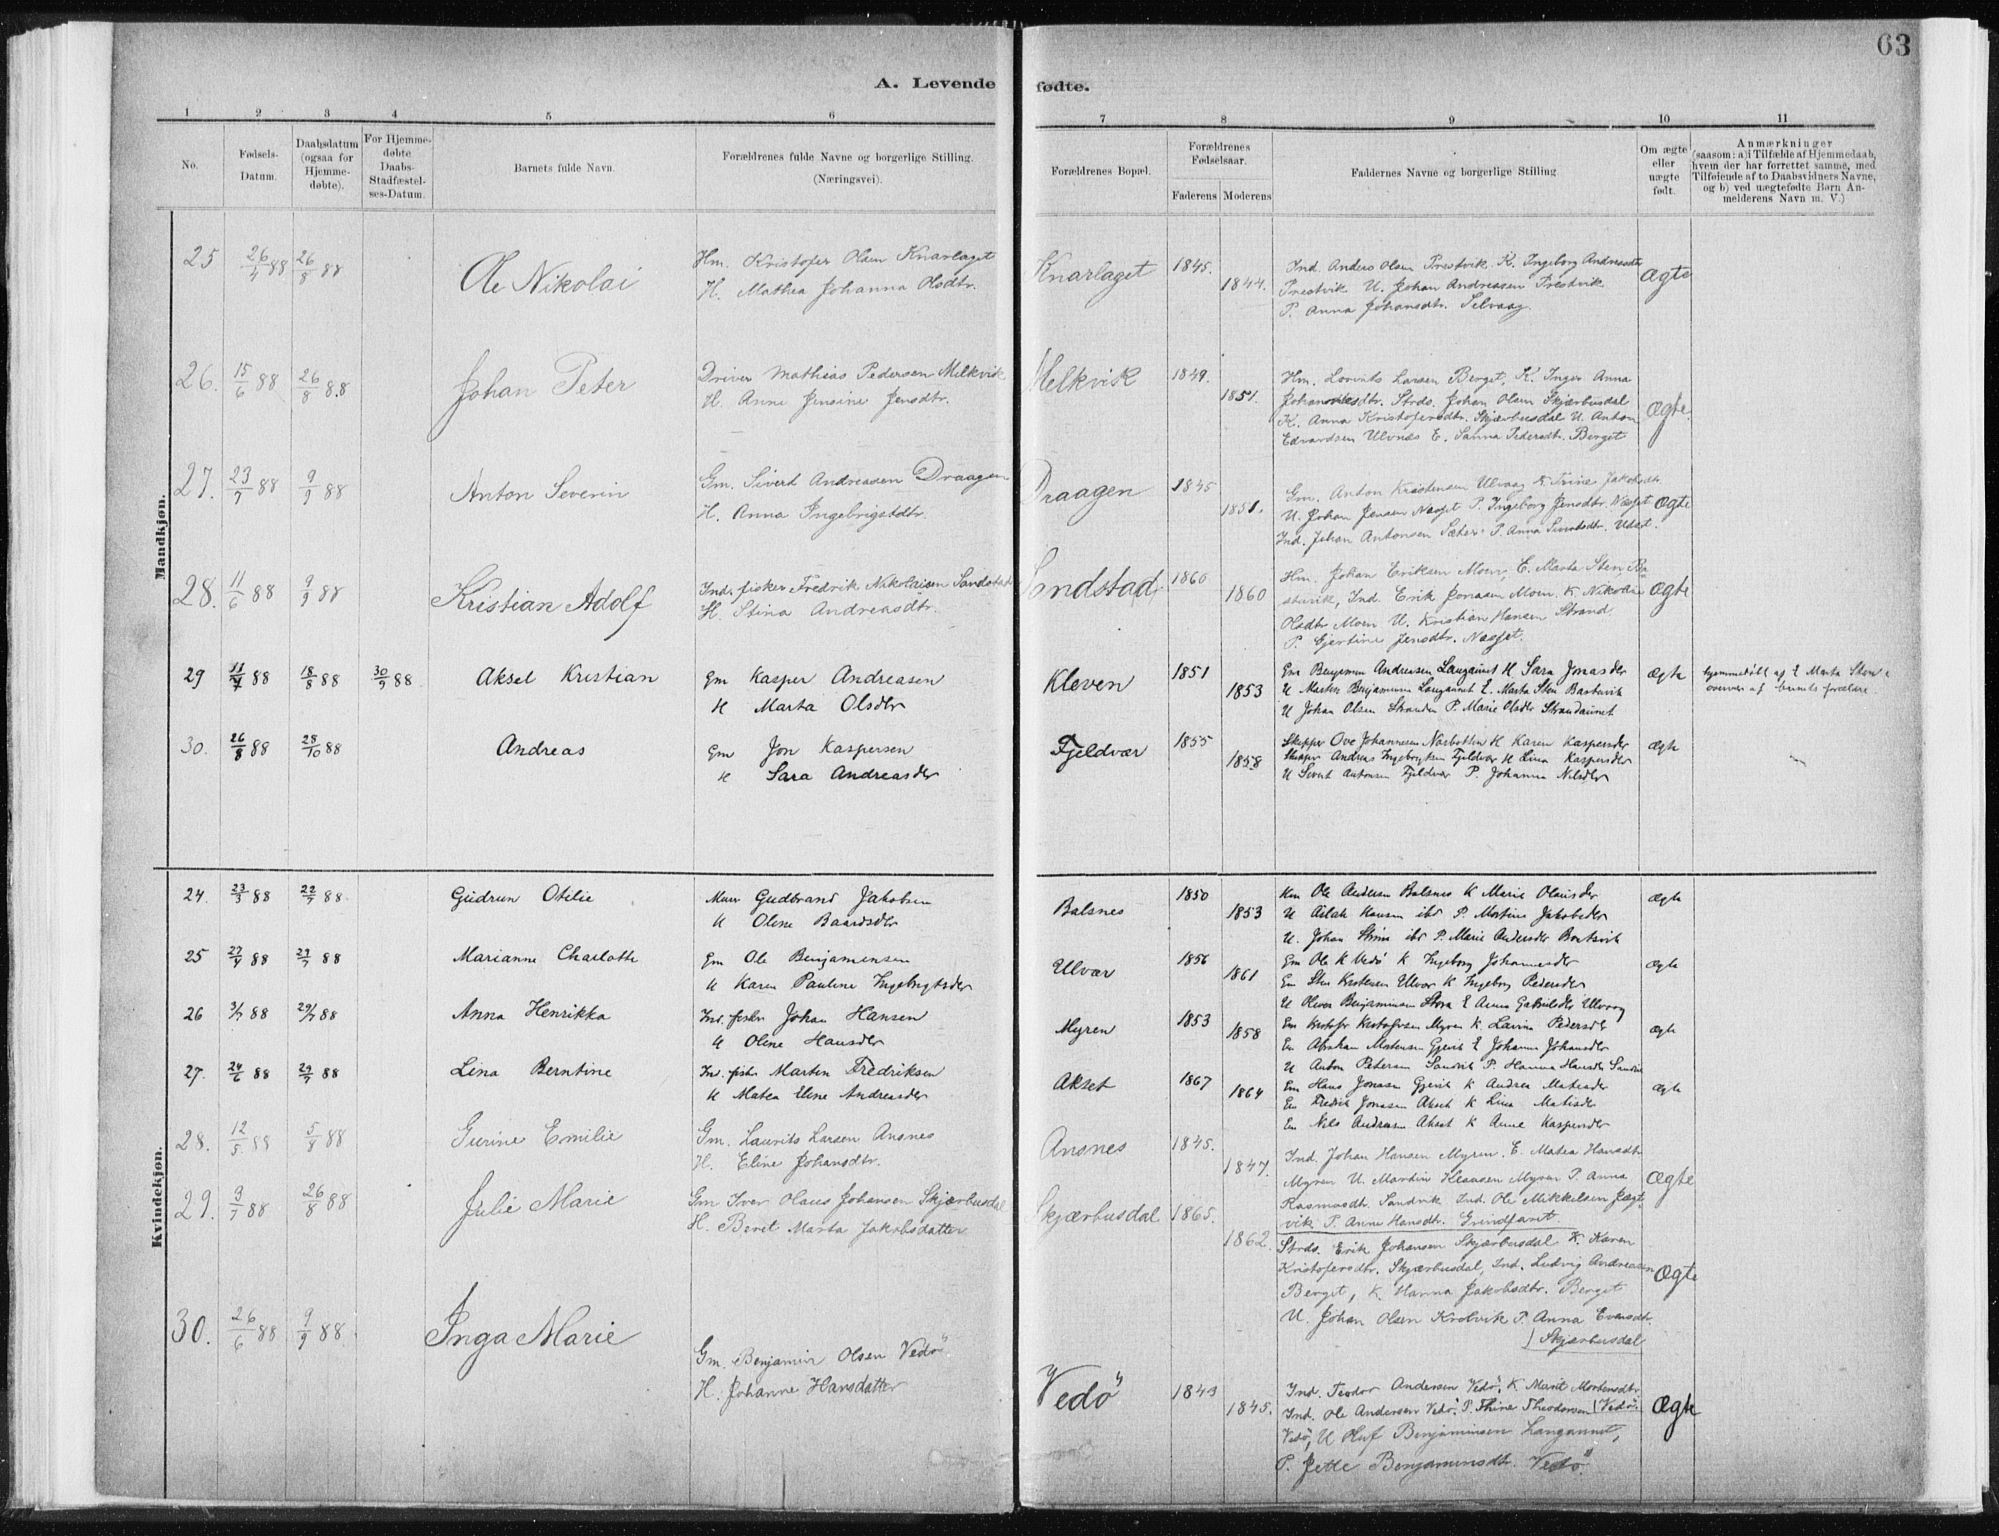 63
A. Levende fødte.
1 2 3 4 5 6 7 8 9 10 11
No.
Fødsels-Datum.
Daabsdatum (ogsaa for Hjemme-døbte).
For Hjemme-døbte Daabs-Stadfæstel-ses-Datum.
Barnets fulde Navn.
Forældrenes fulde Navne og borgerlige Stilling. (Næringsvei).
Forældrenes Bopæl.
Forældrenes Fødselsaar.
Faderens Moderens
Faddernes Navne og borgerlige Stilling
Om ægte eller uægte født.
Anmærkninger
(saasom: a) i Tilfælde af Hjemmedaab, hvem der har forrettet samme, med Tilføiende af to Daabsvidners Navne, og b) ved uægtefødte Børn An-melderens Navn m. V.)
Mandkjøn.
25 26/4 88 26/8 88 Ole Nikolai Hm. Kristofer Olsen Knarlaget Knarlaget 1845. Ind. Anders Olsen Prestvik K. Ingeborg Andreasdtr
H. Mathea Johanna Olsdtr. 1844. Prestvik U. Johan Andreasen Prestvik Ægte
P. Anna Johansdtr. Selvaag.
26. 15/6 88 26/8 88 Johan Peter Driver Mathias Pedersen Melkvik Melkvik 1849. Hm. Lorents Larsen Berget, K. Inger Anna
H. Anne Jensine Jensdtr. 1851. Strds. Johan Olsen Skjærbusdal
K. Anna Kristofersdtr. Skjærbusdal U. Anton Ægte
Edvardsen Ulvnes E. Sanna Pedersdtr. Berget
27. 23/7 88 9/9 88 Anton Severin Gm. Sivert Andreasen Draagen Draagen 1845 Gm. Anton Kristensen Ulvaag K. Trine Jakobsdtr.
H. Anna Ingebrigtsdtr. 1851. U. Johan Jensen Næsset P. Ingeborg Jensdtr. Næsset Ægte
Ind. Johan Antonsen Sæter P. Anna Sivertsdtr.
28. 11/6 88 9/9 88 Kristian Adolf Ind. fisker Fredrik Nikolaisen Sandstad Sandstad 1860 Hm. Johan Eriksen Moen, E. Marta Sten Ba-
H. Stina Andreasdtr. 1860 stuvik, Ind. Erik Jonasen Moen K. Nikoline Ægte
Olsdtr Moen U. Kristian Hansen Strand
P. Gjertine Jensdtr. Næsset.
29 11/7 88 18/8 88 30/9 88 Aksel Kristian Gm Kasper Andreasen Kleven 1851 Em Benjamin Andreasen Langaunet H Sara Jonasder Ægte hjemmedøbt af E Marta Sten i
H Marta Olsder 1853 U Morten Benjaminsen Langaunet E. Marta Sten Bastuvik overvær af barnets forældre.
U Johan Olsen Stranden P Marie Olsder Strandaunet
30. 26/8 88 28/10 88 Andreas Gm Jon Kaspersen Fjeldvær 1855 Skipper Ove Johannesen Nordbotten H Karen Kaspersder Ægte
H Sara Andreasder 1858 Skipper Andreas Ingebrigtsen Fjeldvær H Lina Kaspersder
U Sivert Antonsen Fjeldvær P. Johanna Nilsder
Kvindekjøn.
24. 23/3 88 22/7 88 Gudrun Otilie Murer Gudbrand Jakobsen Balsnes 1850 Km Ole Andersen Balsnes K Marie Olausder Ægte
H Oline Baardsder 1853 U Hansen ibd P. Martine Jakobsder
U. Johan ibd P. Marie Andersder
25 27/4 88 29/7 88 Marianne Charlotte Gm Ole Benjaminsen Ulvær 1856 Gm Ole K Vedø K Ingeborg Johannesder Ægte
H Karen Pauline Ingebrigtsder 1861 Em Sten Kristensen Ulvær K Ingeborg Pedersder
U Oliver Benjaminsen E Anne Gabrielsder Ulvaag
26 3/7 88 29/7 88 Anna Henrikka Ind. fisker Johan Hansen Myren 1853 Em Kristofer Kristofersen Myren K. Lavina Pedersder Ægte
H Oline Hansder 1858 Em Abraham Mortensen Gjevik E Johanna Johansder
U Anton Petersen Sandvik P. Hanna Hansder Sandvik
27. 24/6 88 29/7 88 Lina Berntine Ind. fisker Martin Fredriksen Akset 1867 Em Hans Jonasen Gjevik K Andrea Matiasder Ægte
H Matea Eline Andreasder 1864 Em Fredrik Jonasen Akset K Lina Matisder
Em Nils Andreasen Akset K Anne Kaspersder
28. 12/5 88 5/8 88 Gurine Emilie Gm. Laurits Larsen Ansnes Ansnes 1845. Ind. Johan Hansen Myren. E. Matea Hansdtr
H. Eline Johansdtr. 1847. Myren U. Martin Klausen Myren P. Anna Ægte
Rasmusdtr. Sandvik Ind. Ole Mikkelsen Jægt-
vik P. Anne Hansdtr. Grindfaret
29. 9/7 88 26/8 88 Julie Marie Gm Iver Olaus Johansen Skjærbusdal Skjærbusdal 1865. Strds. Erik Johansen Skjærbusdal K. Karen
H. Beret Marta Jakobsdatter 1862. Kristofersdtr. Skjærbusdal, Ind. Ludvig Andreasen Ægte
Berget, K. Hanna Jakobsdtr. Berget
U. Johan Olsen Krokvik P. Anna Evensdtr.
Skjærbusdal
30. 26/6 88 9/9 88. Inga Marie Gm. Benjamin Olsen Vedø Vedø 1843 Ind. Teodor Andersen Vedø, K. Marit Mortensdtr.
H. Johanne Hansdatter 1845. Ind. Ole Andersen Vedø, P. Stine Theodorsen (Vedø. Ægte
Vedø, U. Oluf Benjaminsen Langaunet,
P. Jette Benjaminsdtr. Vedø